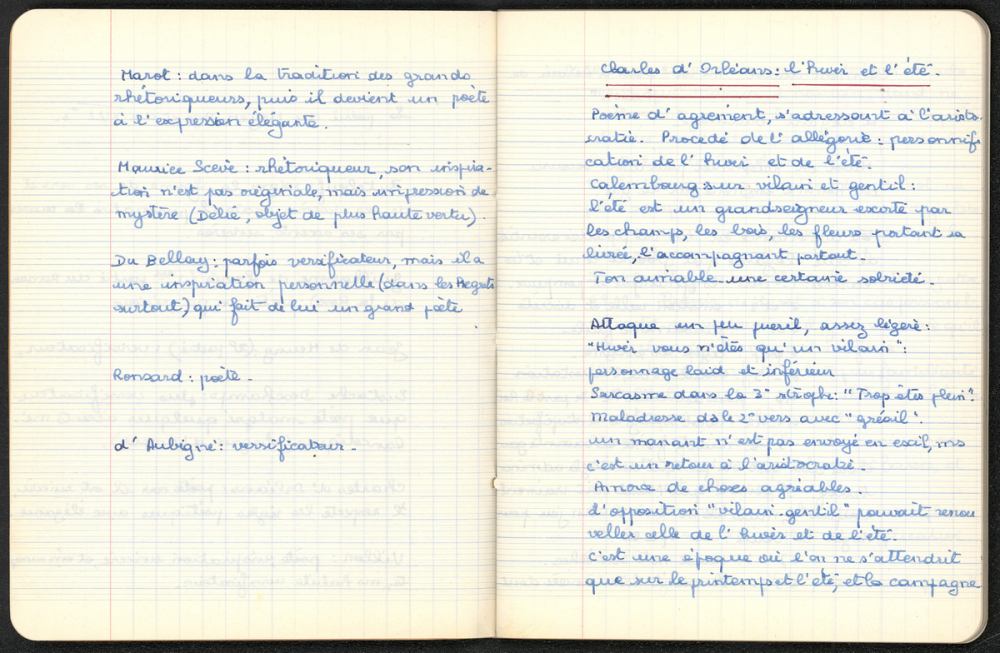 Marot : dans la tradition des grands
rhétoriqueurs, puis il devient un poète
à l'expression élégante.
Maurice Scève : rhétoriqueur, son inspira-
tion n'est pas originale, mais impression de
mystère (Délie, objet de plus haute vertu).
Du Bellay : parfois versificateur, mais il a
une inspiration personnelle (dans les Regrets
surtout) qui fait de lui un grand poète
Ronsard : poète.
d'Aubigné : versificateur.
Charles d'Orléans : l'hiver et l'été.
Poème d'agrément, s'adressant à l'aristo-
cratie. Procédé de l'allégorie : personnifi
cation de l'hiver et de l'été.
Calembourg sur vilain et gentil :
l'été est un grand seigneur escorté par
les champs, les bois, les fleurs portant sa
livrée, l'accompagnant partout.
Ton aimable une certaine sobriété.
Attaque un peu puéril, assez légère :
"Hiver vous n'êtes qu'un vilain" :
personnage laid et inférieur
Sarcasme dans la 3e strophe : "Trop êtes plein".
Maladresse ds le 2e vers avec "grésil".
un manant n'est pas envoyé en exil, ms
c'est un retour à l'aristocratie.
Amorce de choses agréables.
l'opposition "vilain-gentil" pouvait renou
veller celle de l'hiver et de l'été.
C'est une époque où l'on ne s'attendrit
que sur le printemps et l'été, et la campagne